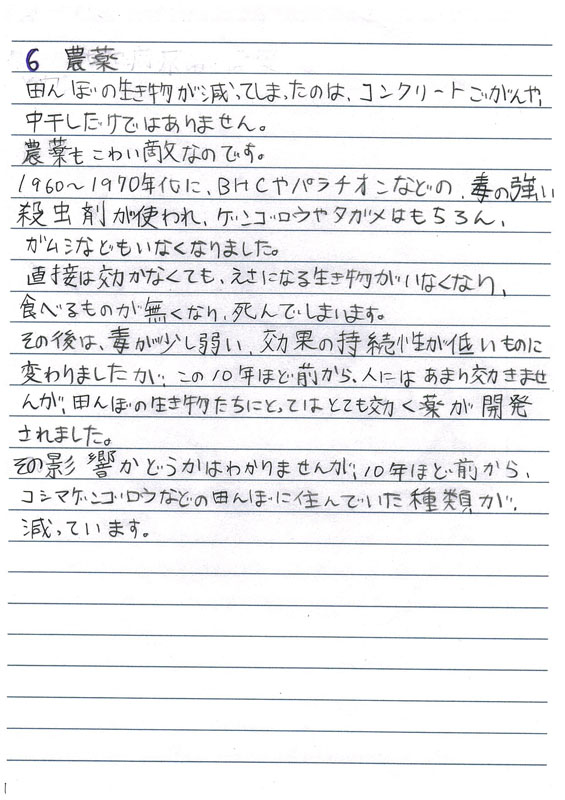 6 農薬
田んぼの生き物が減ってしまったのは、コンクリートごがんや、
中干しだけではありません。
農薬もこわい敵なのです。
1960～1970年代に、BHCやパラチオンなどの、毒の強い
殺虫剤が使われ、ゲンゴロウやタガメはもちろん、
ガムシなどもいなくなりました。
直接は効かなくても、えさになる生き物がいなくなり、
食べるものが無くなり、死んでしまいます。
その後は、毒が少し弱い、効果の持続性が低いものに
変わりましたが、この10年ほど前から、人にはあまり効きませ
んが、田んぼの生き物たちにとってはとても効く薬が開発
されました。
その影響かどうかはわかりませんが、10年ほど前から、
コシマゲンゴロウなどの田んぼに住んでいた種類が、
減っています。